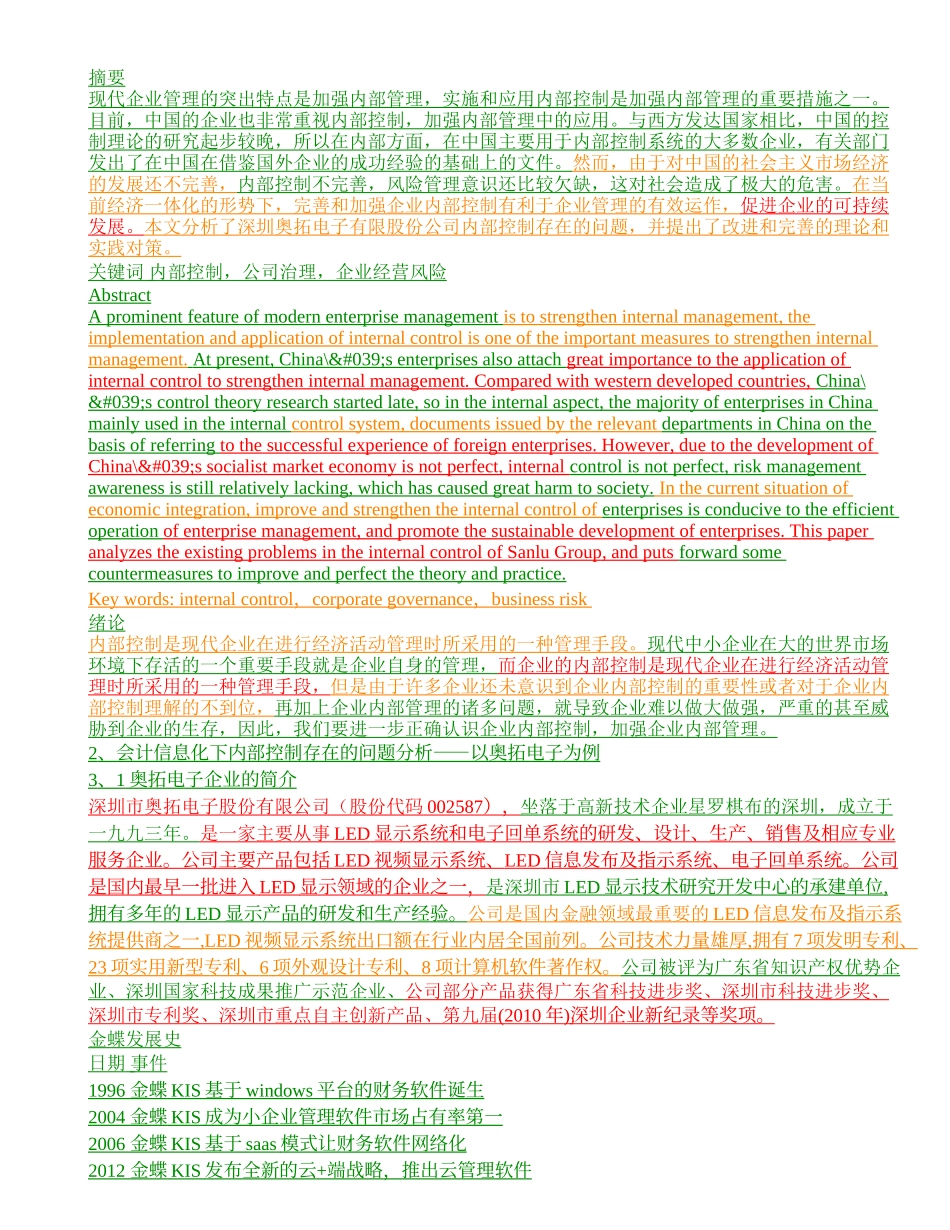 摘要
现代企业管理的突出特点是加强内部管理，实施和应用内部控制是加强内部管理的重要措施之一。
目前，中国的企业也非常重视内部控制，加强内部管理中的应用。与西方发达国家相比，中国的控
制理论的研究起步较晚，所以在内部方面，在中国主要用于内部控制系统的大多数企业，有关部门
发出了在中国在借鉴国外企业的成功经验的基础上的文件。然而，由于对中国的社会主义市场经济
的发展还不完善，内部控制不完善，风险管理意识还比较欠缺，这对社会造成了极大的危害。在当
前经济一体化的形势下，完善和加强企业内部控制有利于企业管理的有效运作，促进企业的可持续
发展。本文分析了深圳奥拓电子有限股份公司内部控制存在的问题，并提出了改进和完善的理论和
实践对策。
关键词 内部控制，公司治理，企业经营风险
Abstract
A prominent feature of modern enterprise management is to strengthen internal management, the
implementation and application of internal control is one of the important measures to strengthen internal
management. At present, China\&#039;s enterprises also attach great importance to the application of
internal control to strengthen internal management. Compared with western developed countries, China\
&#039;s control theory research started late, so in the internal aspect, the majority of enterprises in China
mainly used in the internal control system, documents issued by the relevant departments in China on the
basis of referring to the successful experience of foreign enterprises. However, due to the development of
China\&#039;s socialist market economy is not perfect, internal control is not perfect, risk management
awareness is still relatively lacking, which has caused great harm to society. In the current situation of
economic integration, improve and strengthen the internal control of enterprises is conducive to the efficient
operation of enterprise management, and promote the sustainable development of enterprises. This paper
analyzes the existing problems in the internal control of Sanlu Group, and puts forward some
countermeasures to improve and perfect the theory and practice.
Key words: internal control，corporate governance，business risk
绪论
内部控制是现代企业在进行经济活动管理时所采用的一种管理手段。现代中小企业在大的世界市场
环境下存活的一个重要手段就是企业自身的管理，而企业的内部控制是现代企业在进行经济活动管
理时所采用的一种管理手段，但是由于许多企业还未意识到企业内部控制的重要性或者对于企业内
部控制理解的不到位，再加上企业内部管理的诸多问题，就导致企业难以做大做强，严重的甚至威
胁到企业的生存，因此，我们要进一步正确认识企业内部控制，加强企业内部管理。
2、会计信息化下内部控制存在的问题分析——以奥拓电子为例
3、1 奥拓电子企业的简介
深圳市奥拓电子股份有限公司（股份代码 002587），坐落于高新技术企业星罗棋布的深圳，成立于
一九九三年。是一家主要从事 LED 显示系统和电子回单系统的研发、设计、生产、销售及相应专业
服务企业。公司主要产品包括 LED 视频显示系统、LED 信息发布及指示系统、电子回单系统。公司
是国内最早一批进入 LED 显示领域的企业之一，是深圳市 LED 显示技术研究开发中心的承建单位,
拥有多年的 LED 显示产品的研发和生产经验。公司是国内金融领域最重要的 LED 信息发布及指示系
统提供商之一,LED 视频显示系统出口额在行业内居全国前列。公司技术力量雄厚,拥有 7 项发明专利、
23 项实用新型专利、6 项外观设计专利、8 项计算机软件著作权。公司被评为广东省知识产权优势企
业、深圳国家科技成果推广示范企业、公司部分产品获得广东省科技进步奖、深圳市科技进步奖、
深圳市专利奖、深圳市重点自主创新产品、第九届(2010 年)深圳企业新纪录等奖项。
金蝶发展史
日期 事件
1996 金蝶 KIS 基于 windows 平台的财务软件诞生
2004 金蝶 KIS 成为小企业管理软件市场占有率第一
2006 金蝶 KIS 基于 saas 模式让财务软件网络化
2012 金蝶 KIS 发布全新的云+端战略，推出云管理软件